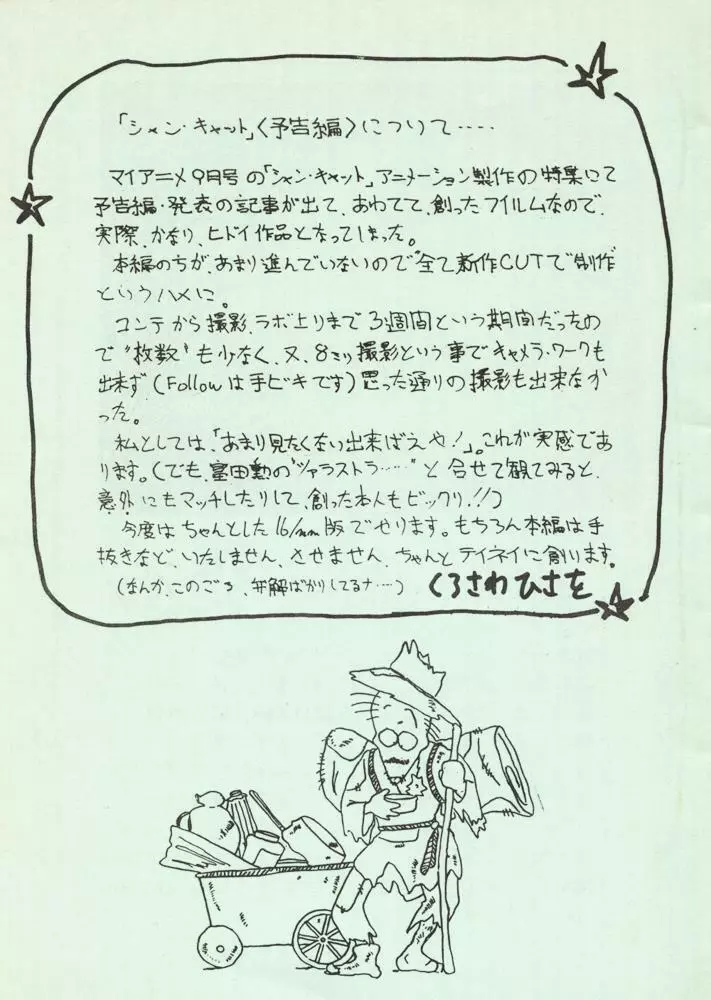 「シャン・キャット」〈予告編〉について……
マイアニメ9月号の「シャン・キャット」アニメーション製作の特集にて
予告編・発表の記事が出て、あわてて、創ったフイルムなので、
実際、かなり、ヒドイ作品となってしまった。
本編のちが、あまり進んでいないので"全て新作CUTで"制作
というハメに。
コンテから撮影、ラボ上りまで3週間という期間だったの
で"枚数"も少なく、又、8ミリ撮影という事でキャメラ・ワークも
出来ず(Followは手ビキです)思った通りの撮影も出来なか
った。
私としては、「あまり見たくない出来ばえや!」。これが実感であ
ります。(でも、富田勲の"ツァラストラ……"と合せて観てみると、
意外にもマッチしたりして、創った本人もビックリ!!)
今度はちゃんとした16/mm版でやります。もちろん本編は手
抜きなど、いたしません、させません、ちゃんとテイネイに創ります。
(なんか、このごろ、弁解ばかりしてるナ…)くろさわひさを